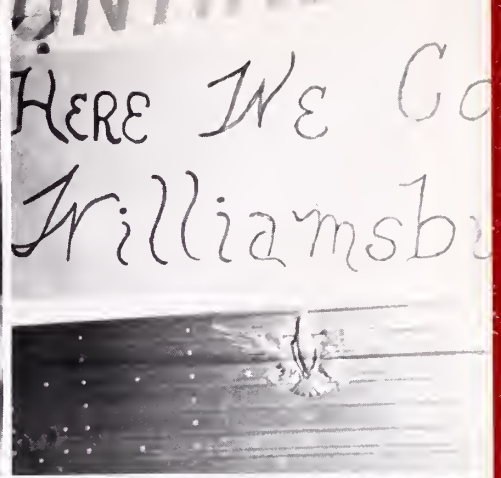 HERE WE Co
Williamsbu